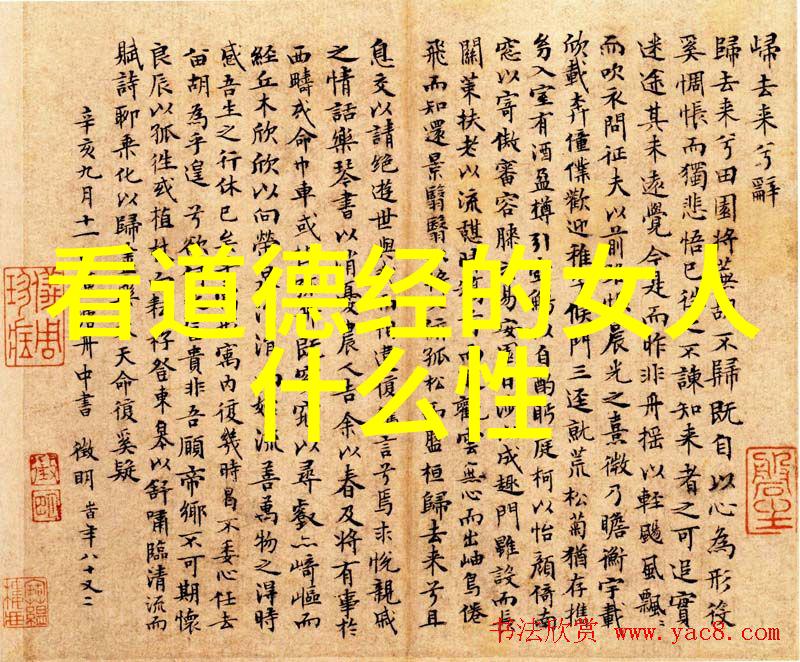 歸去来兮辭
歸去来兮田園將蕪胡不歸既自以心為形役
奚惆悵而獨悲悟已往之不諫知来者之可追實
迷途其未遠覺今是而昨非舟摇以輕颺風飄〻
而吹衣問征夫以前路恨晨光之熹微乃瞻衡宇載
欣載奔僮僕歡迎稚子候門三逕就荒松菊猶存携
幼入室有酒盈樽引壺觴以自酌眄庭柯以怡顔倚南
窓以寄傲審容膝易安園日涉以成趣門雖設而長
關策扶老以流憩觀雲無心而出岫鳥倦
飛而知還景翳翳孤松而盤桓歸去来兮且
息交以請絶遊世與而相違復言兮焉求悦親戚
之情話樂琴書以消憂農人告余以春及將有事於
西疇或命巾車或既窈窕以尋壑亦崎嶇而
經丘木欣欣以向榮泉涓始流善萬物之得時
感吾生之行休已矣寓内復幾時曷不委心任去
留胡為乎遑兮欲富貴非吾願帝鄉不可期懷
良辰以孤往或植杖耘耔登東皋以舒嘯臨清流而
賦詩聊乘化以歸天命復奚疑
辛亥九月十二舟中書 徵明 時年八十又二
看道德经的女人
什么性
书法欣赏 www.yac8.com